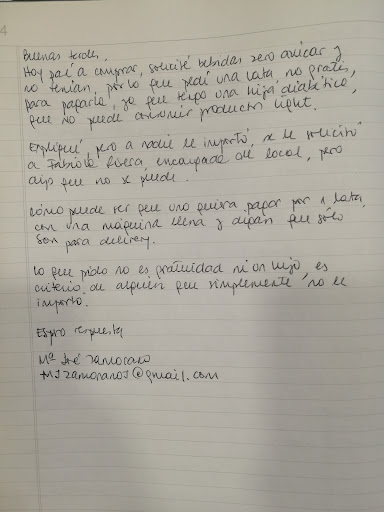 4
Buenas tardes,
Hoy pasé a comprar, solicité bebidas zero azúcar y
no tenían, por lo que pedí una lata, no gratis,
para pagarla, ya que tengo una hija diabética,
que no puede consumir productos light.
Expliqué, pero a nadie le importó, se le solicitó
a Fabiola Rivera, encargada de local, pero
dijo que no se puede.
Cómo puede ser que uno quiera pagar por 1 lata,
con una máquina llena y digan que sólo
son para delivery.
Lo que pido no es gratuidad ni un lujo, es
criterio de alguien que simplemente no le
importó.
Espero respuesta
Mª José Zamorano